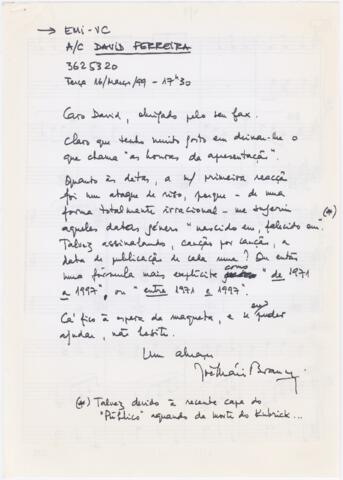 → EMI-VC
A/C DAVID FERREIRA
3625320
Terça 16/Março/99 - 17h30
Caro David, obrigado pelo seu fax.
Claro que tenho muito gosto em deixar-lhe o
que chama "as honras da apresentação".
Quanto às datas, a m/ primeira reacção
foi um ataque de riso, porque - de uma
forma totalmente irracional - me sugeriam
aquelas datas género "nascido em, falecido em" (*)
Talvez assinalando, canção por canção, a
data de publicação de cada uma? Ou então
uma fórmula mais explícita como "de 1971
a 1997", ou "entre 1971 e 1997".
Cá fico à espera da maqueta, e se eu puder
ajudar, não hesite.
Um abraço
José Mário Branco
(*) Talvez devido à recente capa do
"Público" aquando da morte do Kubrick...